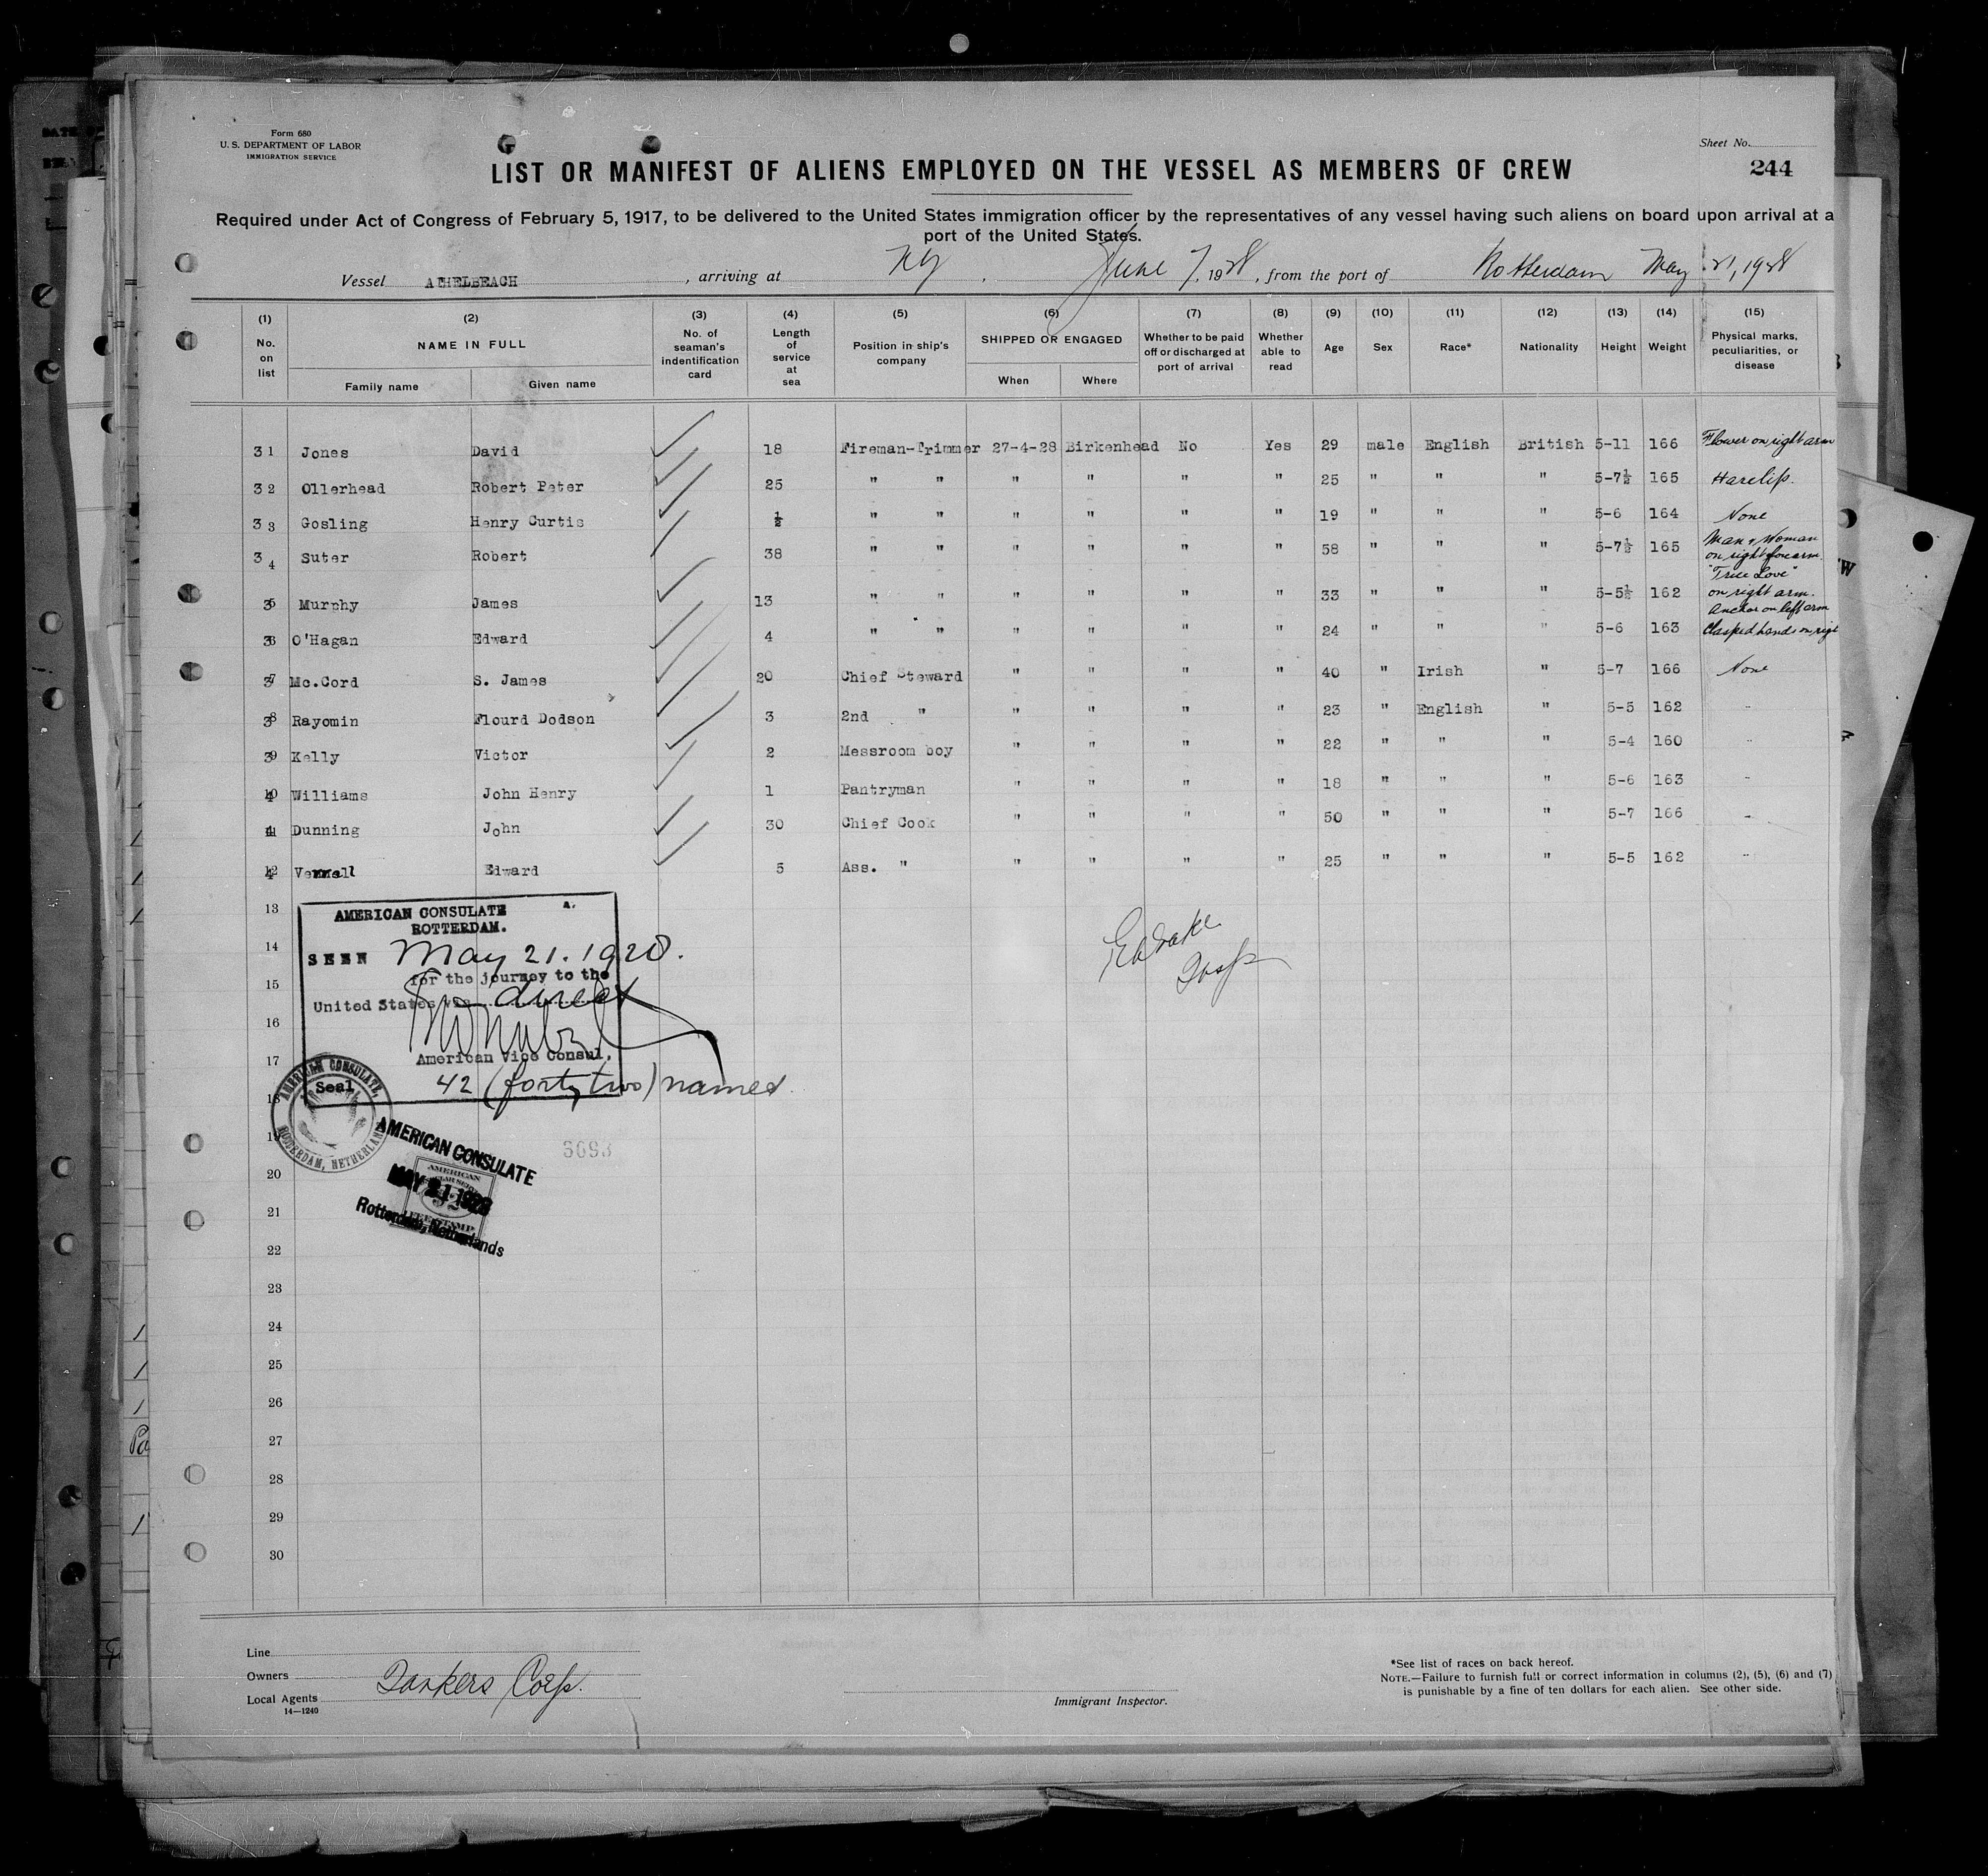 Form 680
U. S. DEPARTMENT OF LABOR
IMMIGRATION SERVICE
Sheet No.
244
LIST OR MANIFEST OF ALIENS EMPLOYED ON THE VESSEL AS MEMBERS OF CREW
Required under Act of Congress of February 5, 1917, to be delivered to the United States immigration officer by the representatives of any vessel having such aliens on board upon arrival at a
port of the United States.
Vessel ATHELBEACH, arriving at NY, June 7, 1928, from the port of Rotterdam May 21, 1928
(1) No. on list (2) NAME IN FULL Family name Given name (3) No. of seaman's indentification card (4) Length of service at sea (5) Position in ship's company (6) SHIPPED OR ENGAGED When Where (7) Whether to be paid off or discharged at port of arrival (8) Whether able to read (9) Age (10) Sex (11) Race* (12) Nationality (13) Height (14) Weight (15) Physical marks, peculiarities, or disease
31 Jones David 18 Fireman-Trimmer 27-4-28 Birkenhead No Yes 29 male English British 5-11 166 Flower on right arm
32 Ollerhead Robert Peter 25 " " " " " " 25 " " " 5-7½ 165 Harelip.
33 Gosling Henry Curtis ½ " " " " " " 19 " " " 5-6 164 None
34 Suter Robert 38 " " " " " " 58 " " " 5-7½ 165 Man & Woman on right forearm.
35 Murphy James 13 " " " " " " 33 " " " 5-5½ 162 "True Love" on right arm. Anchor on left arm
36 O'Hagan Edward 4 " " " " " " 24 " " " 5-6 163 Clasped hands on right
37 Mc.Cord S. James 20 Chief Steward " " " " 40 " Irish " 5-7 166 None
38 Rayomin Flourd Dodson 3 2nd " " " " " 23 " English " 5-5 162 "
39 Kelly Victor 2 Messroom boy " " " " 22 " " " 5-4 160 "
40 Williams John Henry 1 Pantryman " " " " 18 " " " 5-6 163 "
41 Dunning John 30 Chief Cook " " " " 50 " " " 5-7 166 "
42 Edward 5 Ass. " " " " " 25 " " " 5-5 162 "
13
14
15
16
17
18
19
20
21
22
23
24
25
26
27
28
29
30
AMERICAN CONSULATE
ROTTERDAM.
SEEN May 21. 1928.
for the journey to the
United States via direct
American Vice Consul.
Seal
42 (forty two) names
AMERICAN CONSULATE, ROTTERDAM, NETHERLANDS
AMERICAN CONSULATE
MAY 21 1928
Rotterdam, Netherlands
Line
Owners
Local Agents
Tankers Corp.
14—1240
Immigrant Inspector.
*See list of races on back hereof.
NOTE.—Failure to furnish full or correct information in columns (2), (5), (6) and (7)
is punishable by a fine of ten dollars for each alien. See other side.